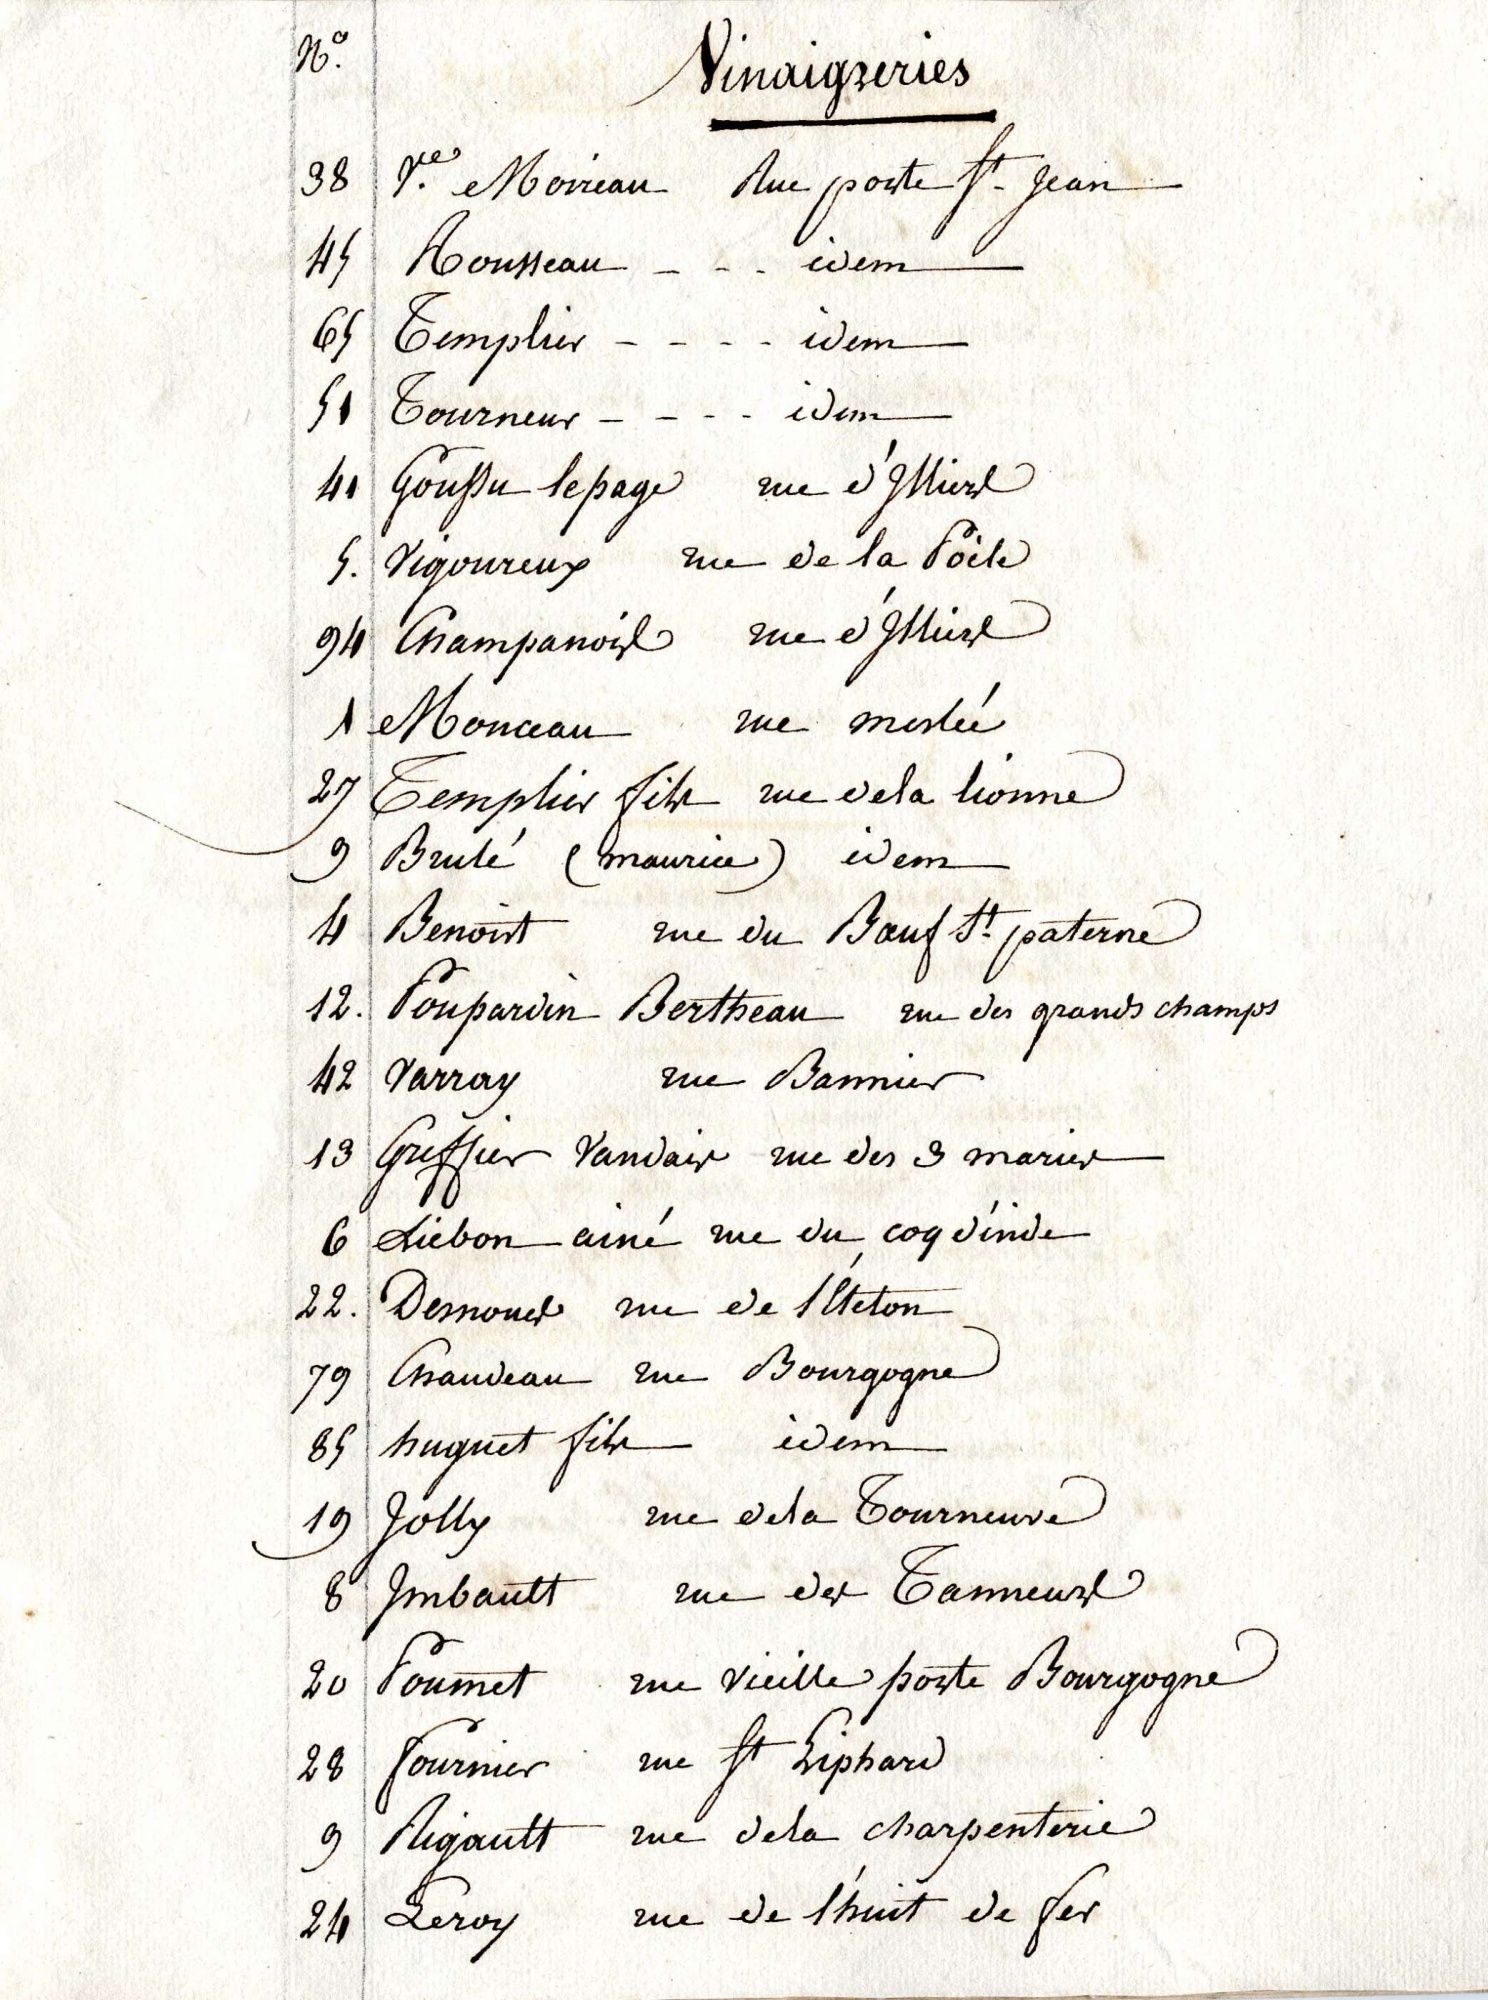 N.o Vinaigreries
38 V.e Moireau Rue porte St. Jean
45 Rousseau - - - idem
65 Templier - - - - idem
51 Tourneur - - - - idem
41 Goussu lepage rue d'Illiers
5. Vigoureux rue de la Poële
94 Champanois rue d'Illiers
1 Monceau rue meslée
27 Templier fils rue dela lionne
9 Brulé (maurice) idem
4 Benoist rue du Bœuf St. paterne
12. Poupardin Bertheau rue des grands champs
42 Varray rue Bannier
13 Greffier Vandais rue des 3 maries
6 Liebon ainé rue du coq d'inde
22. Desnoues rue de l'Ételon
79 Chaudeau rue Bourgogne
85 huguet fils idem
19 Jolly rue dela Tourneuve
8 Imbault rue des Tanneurs
20 Poumet rue vieille porte Bourgogne
28 Fournier rue St Liphard
9 Rigault rue dela charpenterie
24 Leroy rue de l'huit de fer